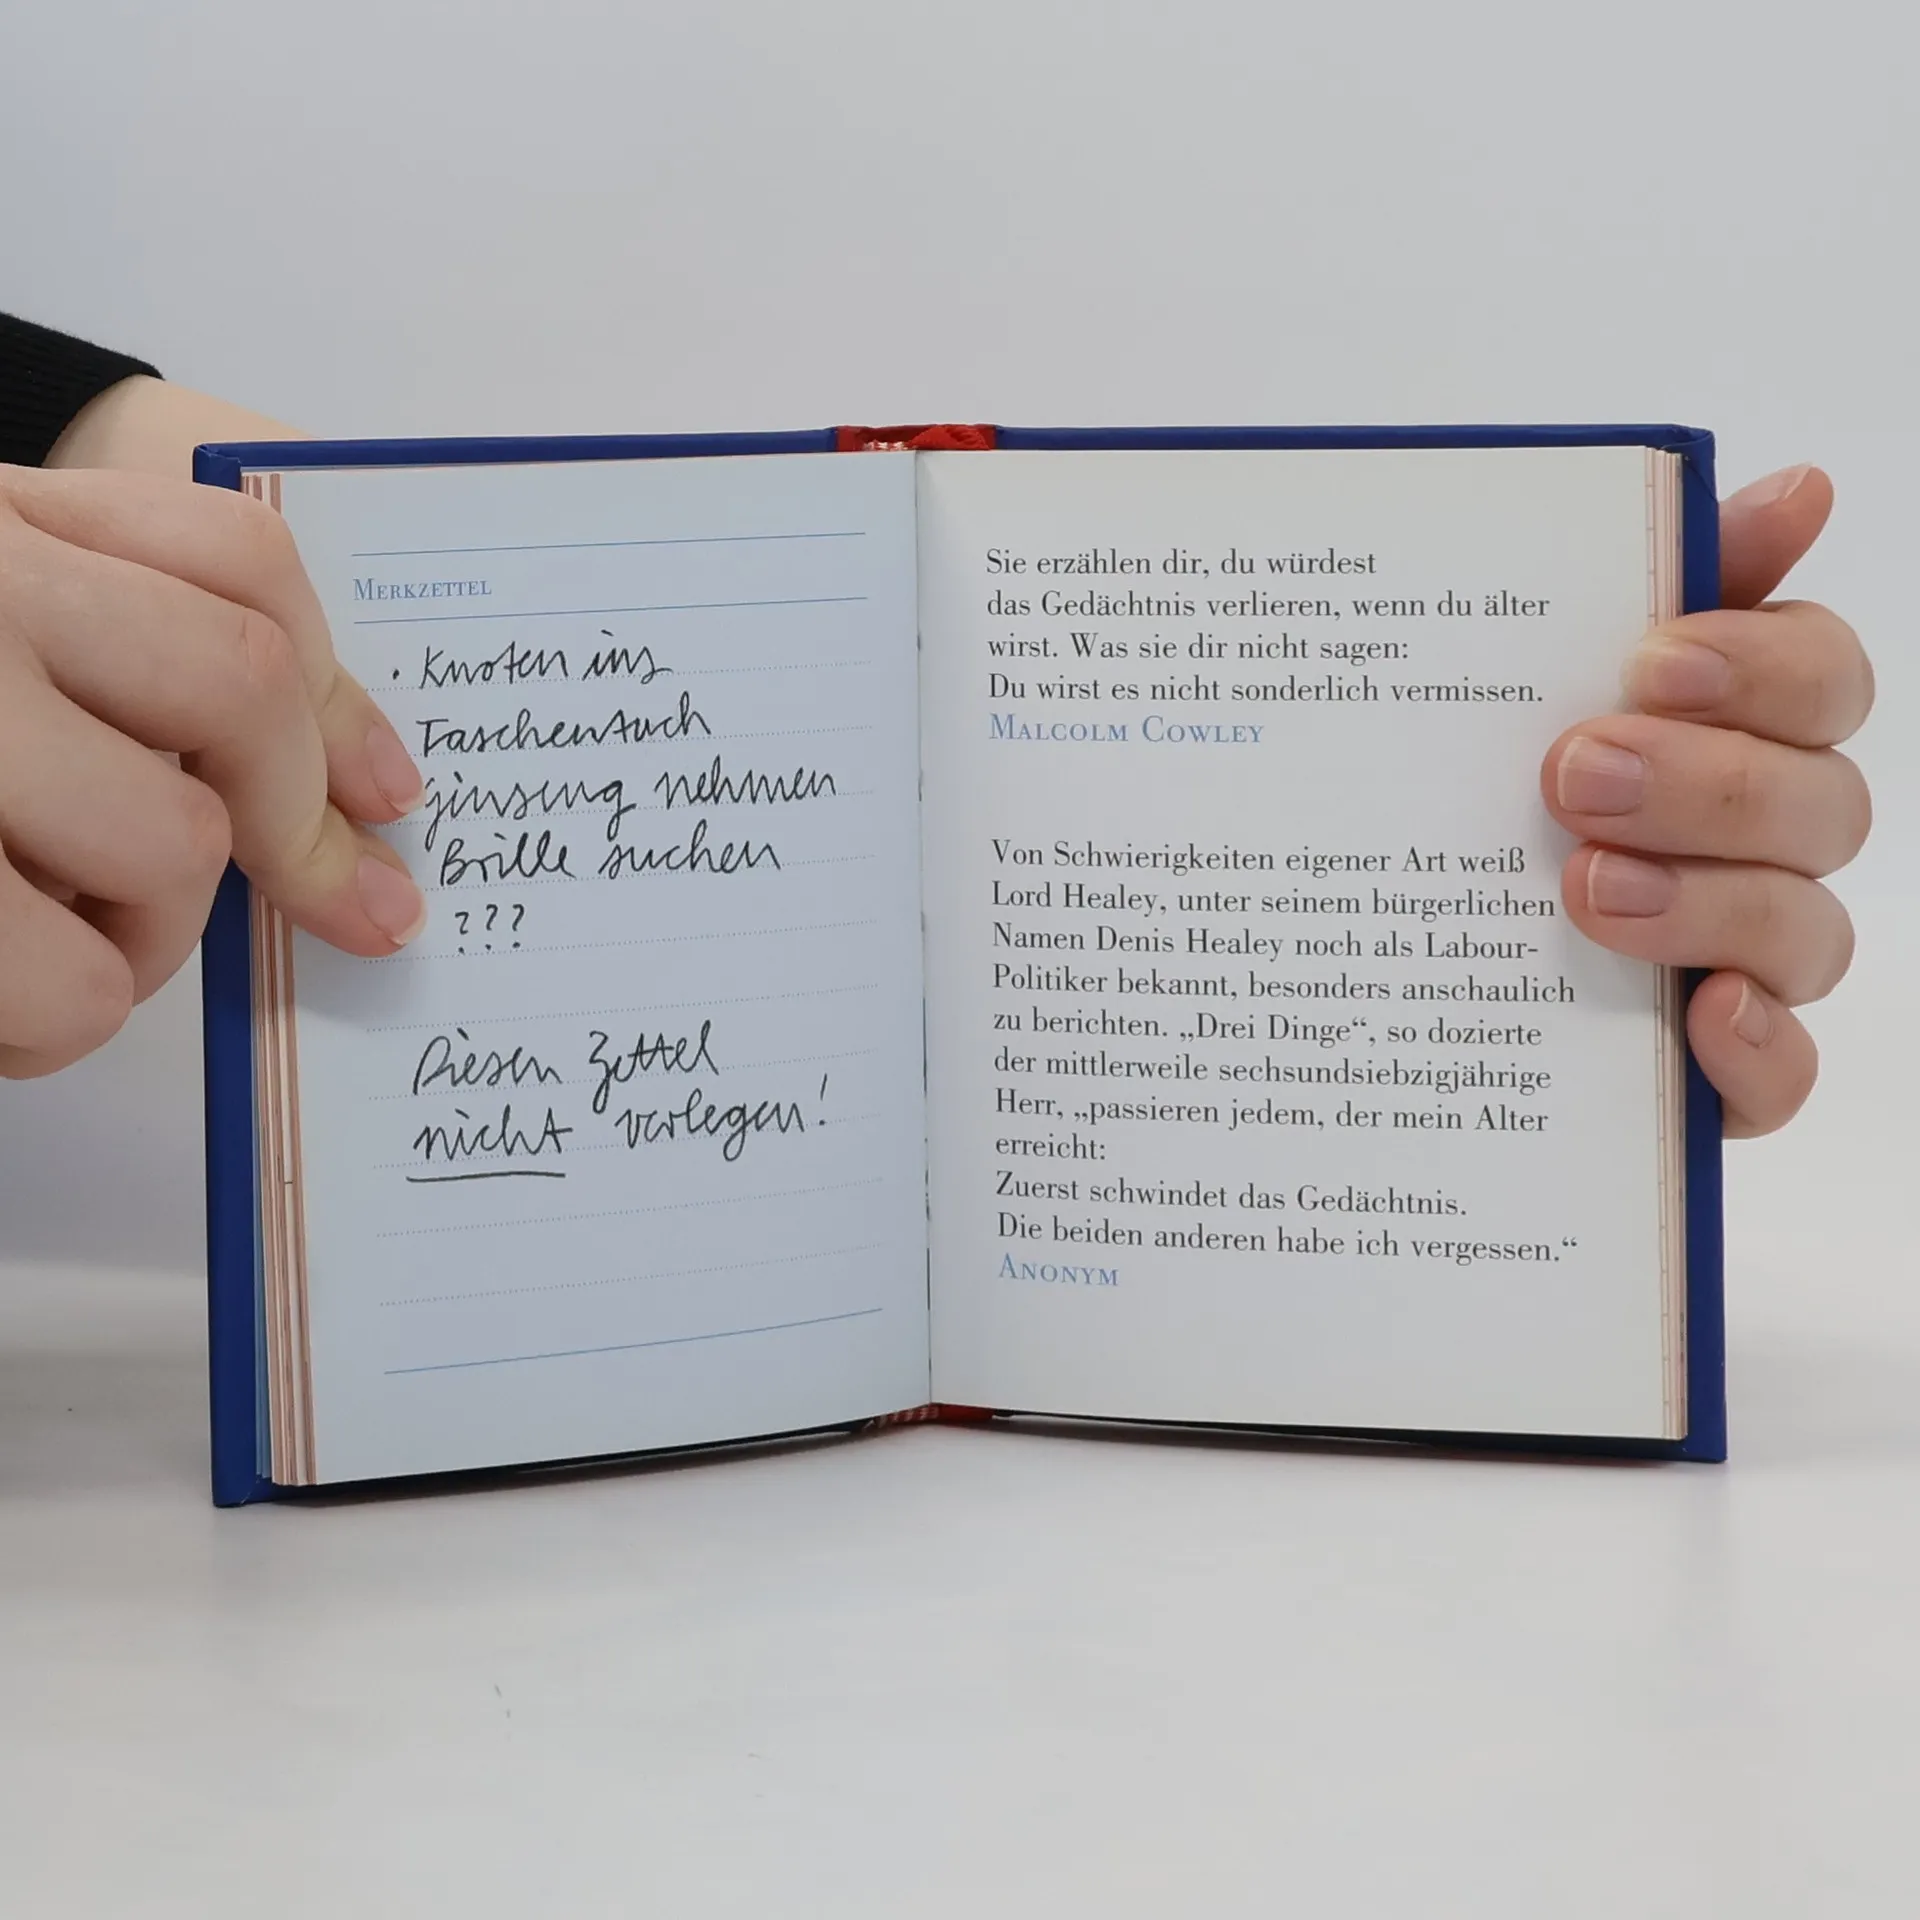 MERKZETTEL
· Knoten ins
Taschentuch
Ginseng nehmen
Brille suchen
???
Diesen Zettel
nicht verlegen!
Sie erzählen dir, du würdest
das Gedächtnis verlieren, wenn du älter
wirst. Was sie dir nicht sagen:
Du wirst es nicht sonderlich vermissen.
MALCOLM COWLEY
Von Schwierigkeiten eigener Art weiß
Lord Healey, unter seinem bürgerlichen
Namen Denis Healey noch als Labour-
Politiker bekannt, besonders anschaulich
zu berichten. „Drei Dinge“, so dozierte
der mittlerweile sechsundsiebzigjährige
Herr, „passieren jedem, der mein Alter
erreicht:
Zuerst schwindet das Gedächtnis.
Die beiden anderen habe ich vergessen.“
ANONYM